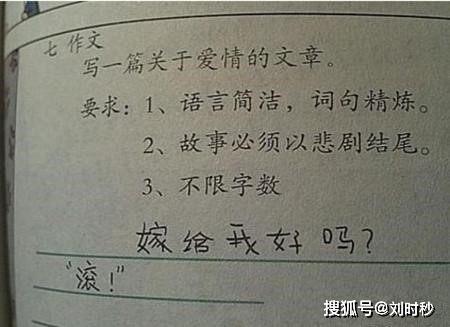 七 作文
写一篇关于爱情的文章。
要求：1、语言简洁，词句精炼。
2、故事必须以悲剧结尾。
3、不限字数
嫁给我好吗？
“滚！”
搜狐号@刘时秒